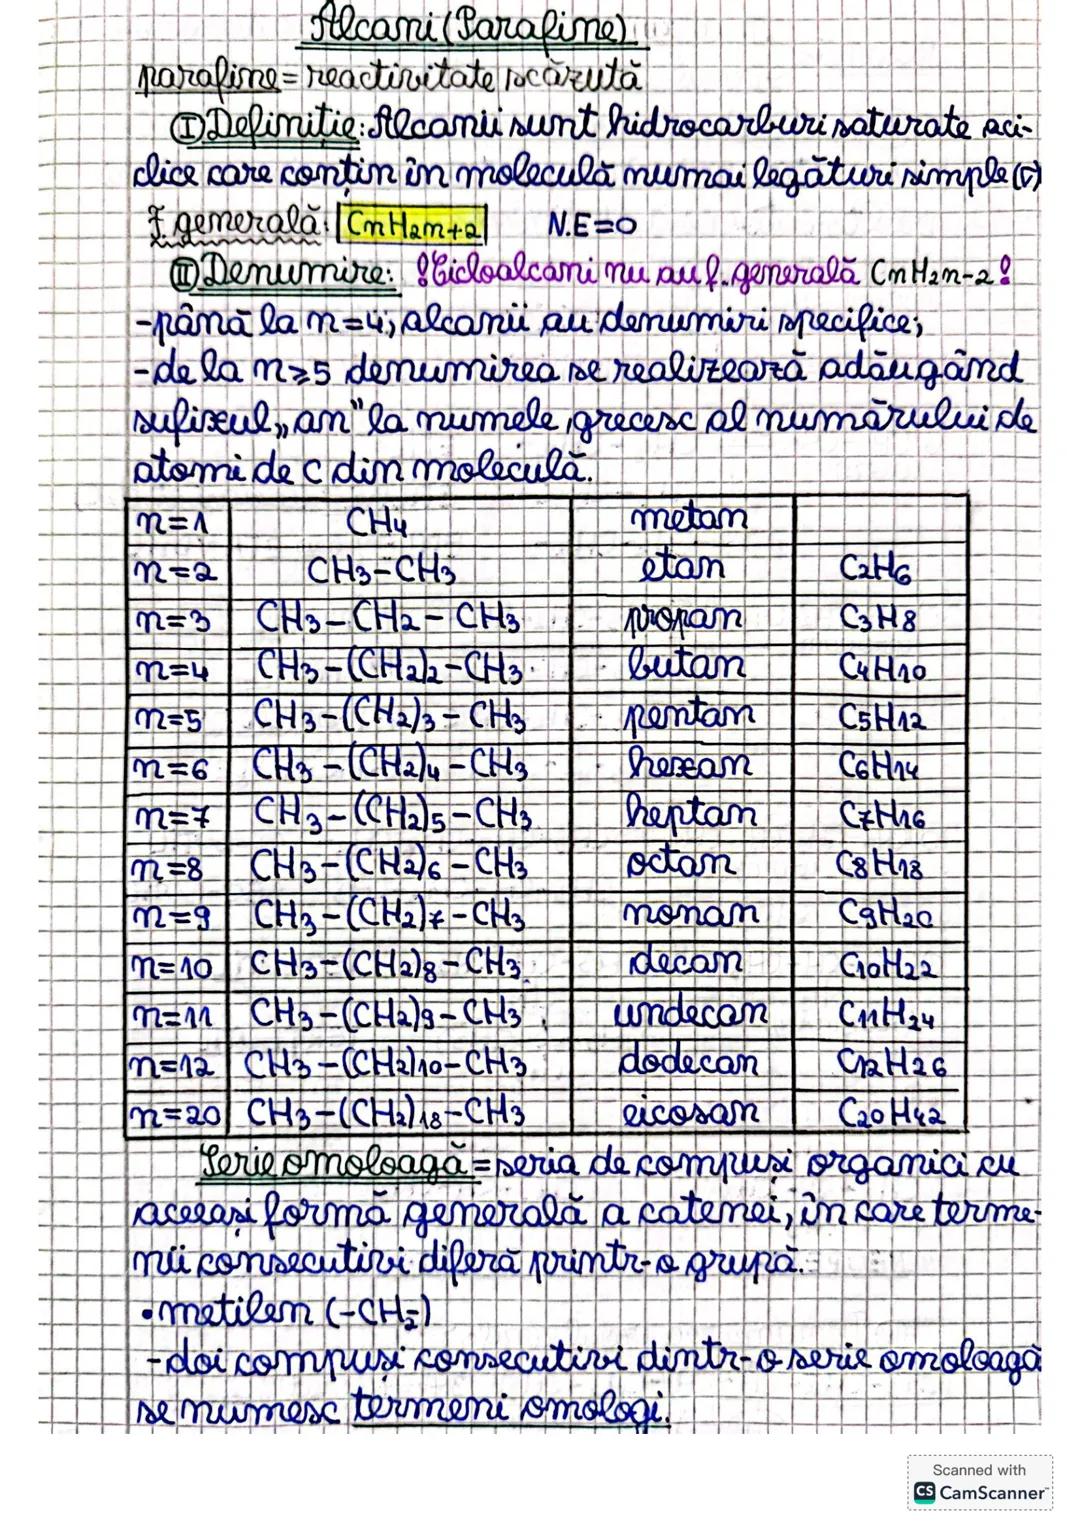 Alcani (Parafine)
parafine = reactivitate scăzută
I Definiție: Alcanii sunt hidrocarburi saturate aci-
clice care conțin în moleculă numai legături simple (σ)
F generală: CnH2n+2 N.E=0
II Denumire: !Cicloalcani nu au f. generală CnH2n-2!
-până la n=4; alcanii au denumiri specifice;
-de la n≥5 denumirea se realizează adăugând
sufixul „an" la numele grecesc al numărului de
atomi de C din moleculă.
n=1 CH4 metan
n=2 CH3-CH3 etan C2H6
n=3 CH3-CH2-CH3 propan C3H8
n=4 CH3-(CH2)2-CH3 butan C4H10
n=5 CH3-(CH2)3-CH3 pentan C5H12
n=6 CH3-(CH2)4-CH3 hexan C6H14
n=7 CH3-(CH2)5-CH3 heptan C7H16
n=8 CH3-(CH2)6-CH3 octan C8H18
n=9 CH3-(CH2)7-CH3 nonan C9H20
n=10 CH3-(CH2)8-CH3 decan C10H22
n=11 CH3-(CH2)9-CH3 undecan C11H24
n=12 CH3-(CH2)10-CH3 dodecan C12H26
n=20 CH3-(CH2)18-CH3 eicosan C20H42
Serie omoloagă = seria de compuși organici cu
aceeași formă generală a catenei, în care terme-
nii consecutivi diferă printr-o grupă.
•metilen (-CH2-)
-doi compuși consecutivi dintr-o serie omoloagă
se numesc termeni omologi.
Scanned with
CS CamScanner